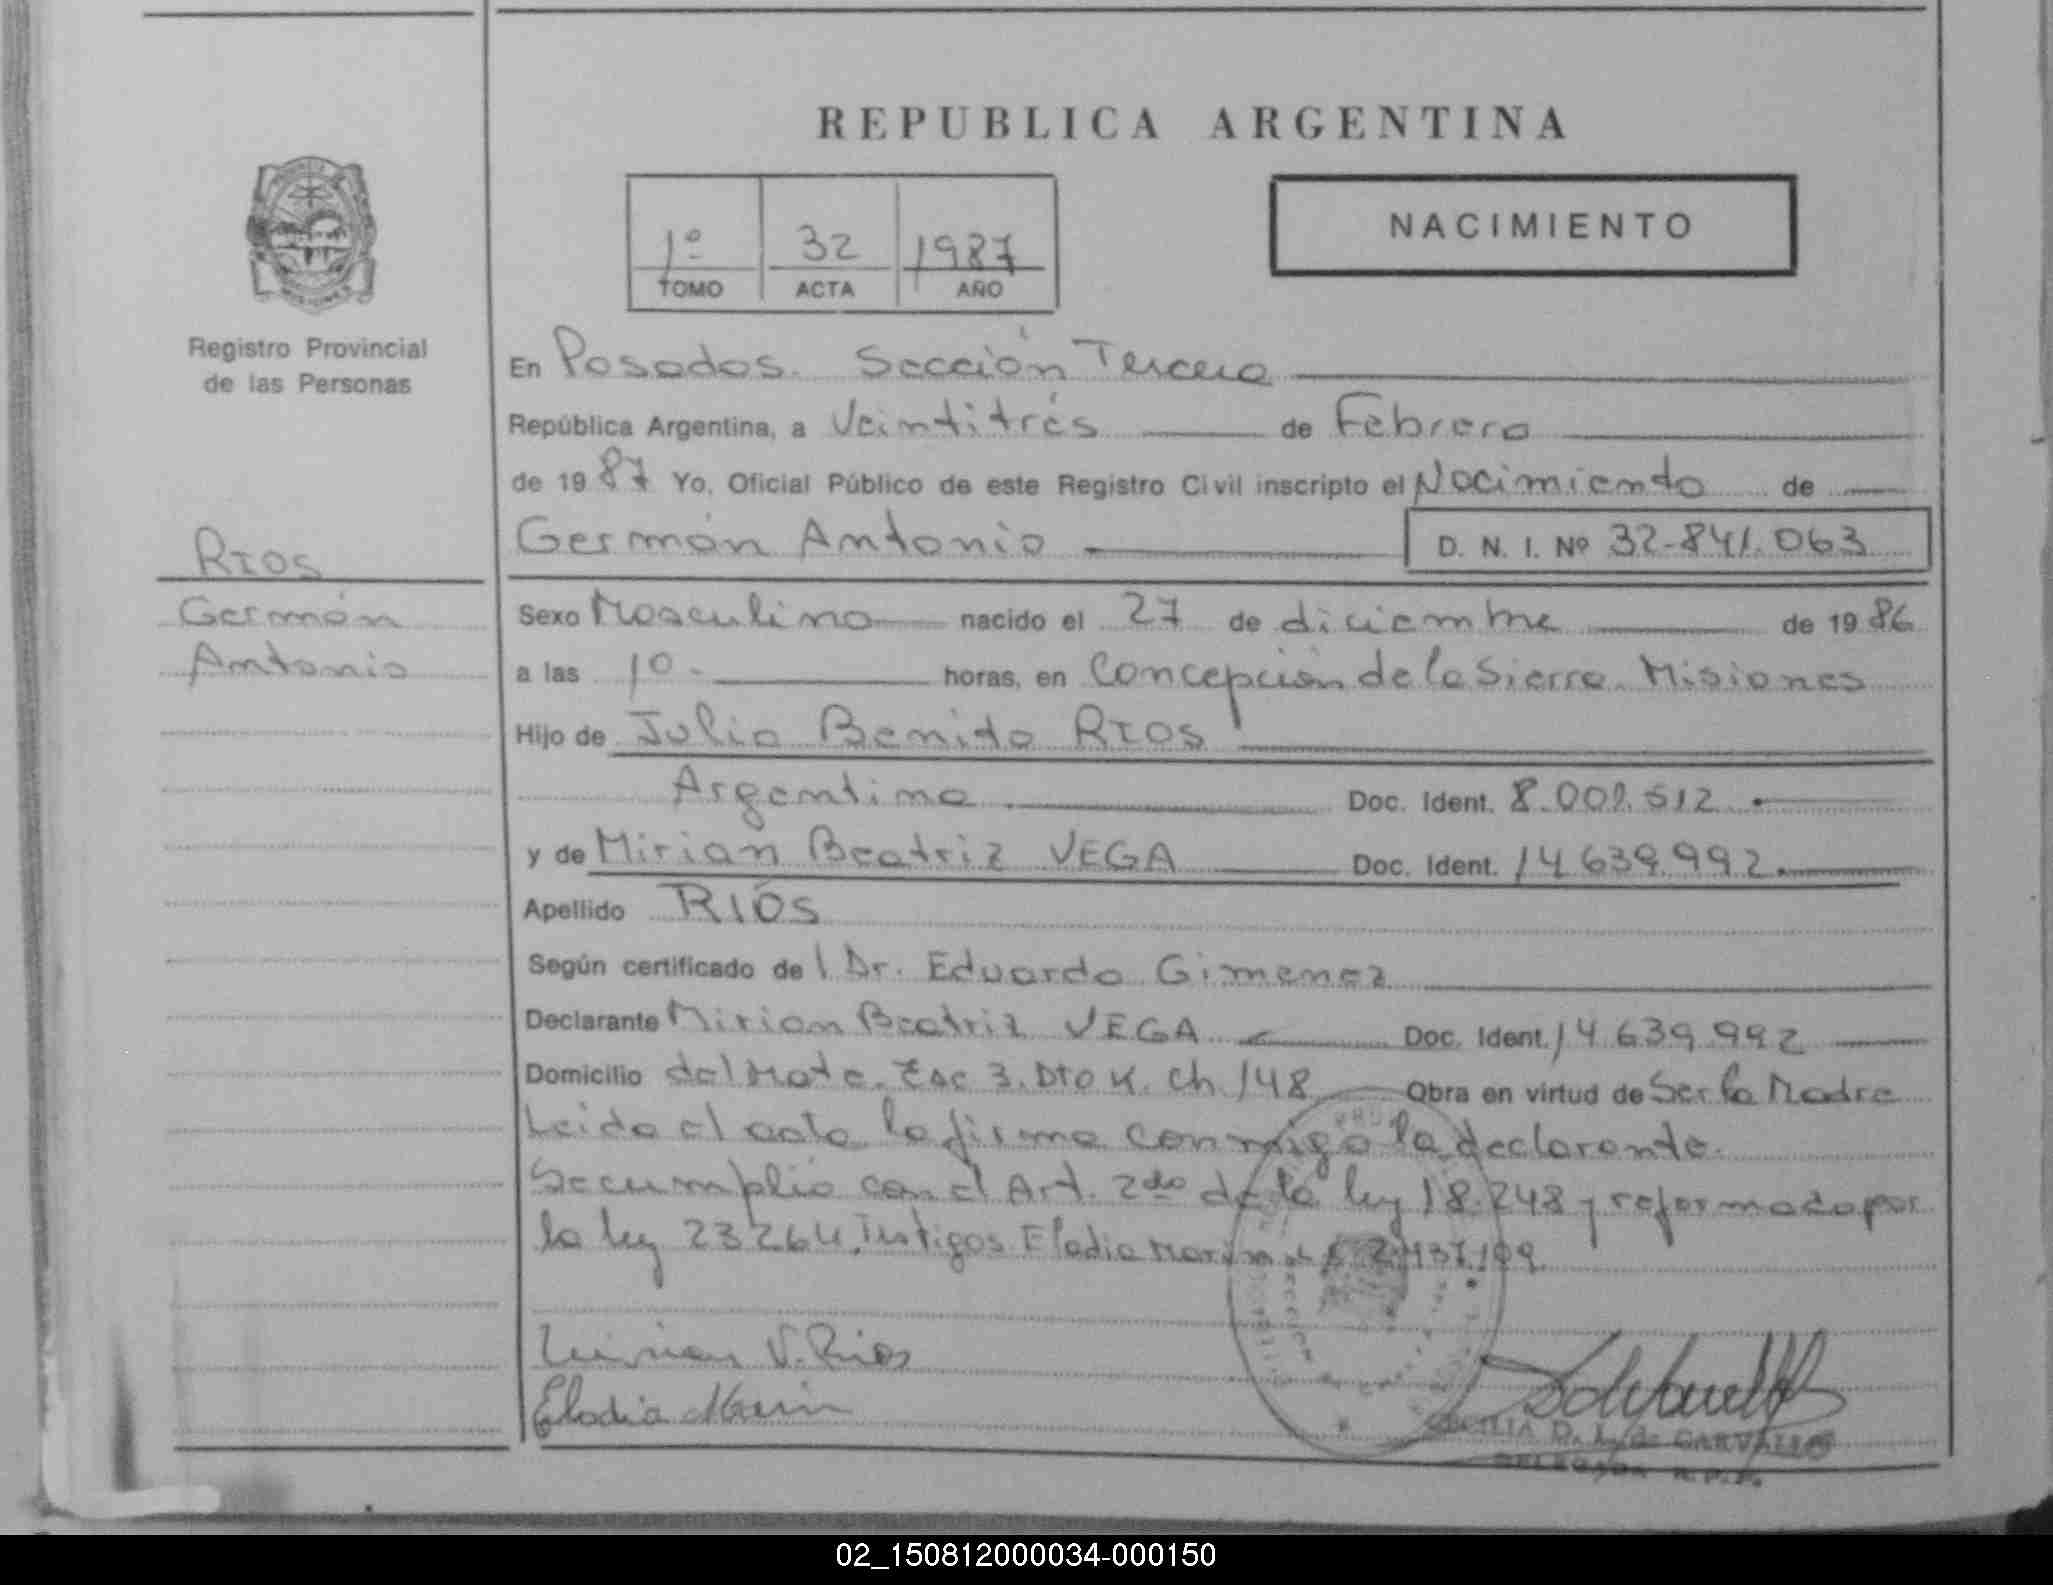 REPUBLICA ARGENTINA
NACIMIENTO
1º 32 1987
TOMO ACTA AÑO
Registro Provincial
de las Personas
RIOS
Germán
Antonio
En Posadas. Sección Tercera
República Argentina, a Veintitrés de Febrero
de 1987 Yo, Oficial Público de este Registro Civil inscripto el Nacimiento de
Germán Antonio D. N. I. Nº 32-841.063
Sexo Masculino nacido el 27 de diciembre de 1986
a las 10- horas, en Concepción de la Sierra. Misiones
Hijo de Julio Benito RIOS
Argentino Doc. Ident. 8.001.512
y de Mirian Beatriz VEGA Doc. Ident. 14.639.992
Apellido RIOS
Según certificado del Dr. Eduardo Gimenez
Declarante Mirian Beatriz VEGA Doc. Ident. 14.639.992
Domicilio del Mate. Esc 3. Dto K. Ch 148 Obra en virtud de Ser la Madre
Leida el acta la firma conmigo la declarante.
Se cumplió con el Art. 2do de la ley 18.248 y reformada por
la ley 23264. Testigos Elodia Marin
V. Rios
Elodia Marin
CECILIA D. L. de CARVALLO
DELEGADA R.P.P.
02_150812000034-000150